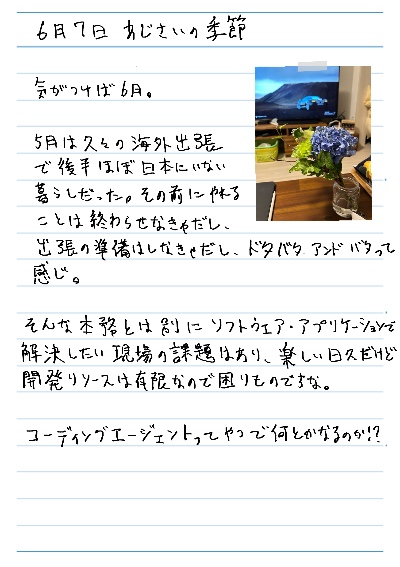 6月7日 あじさいの季節
気がつけば6月。
5月は久々の海外出張
で後半ほぼ日本にいない
暮らしだった。その前にやれる
ことは終わらせなきゃだし、
出張の準備はしなきゃだし、ドタバタ アンド バタって
感じ。
そんな本務とは別に ソフトウェア・アプリケーションで
解決したい現場の課題はあり、楽しい日々だけど
開発リソースは有限なので困りものですな。
コーディングエージェントってやつで何とかなるのか!?